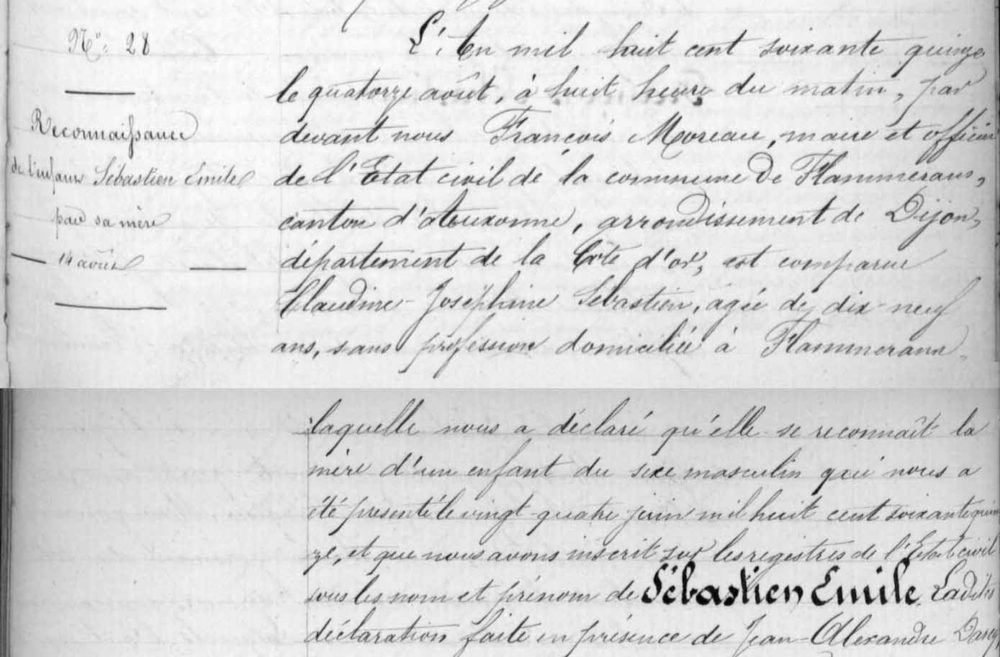 N° 28
Reconnaissance
de l'enfant Sébastien Emile
par sa mère
14 août
L'An mil huit cent soixante quinze
le quatorze août, à huit heure du matin, par
devant nous François Moreau, maire et officier
de l'Etat civil de la commune de Flammerans,
canton d'Auxonne, arrondissement de Dijon,
département de la Côte d'or, est comparue
Claudine Joséphine Sébastien, agée de dix-neuf
ans, sans profession domiciliée à Flammerans
laquelle nous a déclaré qu'elle se reconnaît la
mère d'un enfant du sexe masculin qui nous a
été présenté le vingt quatre juin mil huit cent soixante quin
ze, et que nous avons inscrit sur les registres de l'Etat civil
sous les nom et prénom de Sébastien Emile. Ladite
déclaration faite en présence de Jean-Alexandre